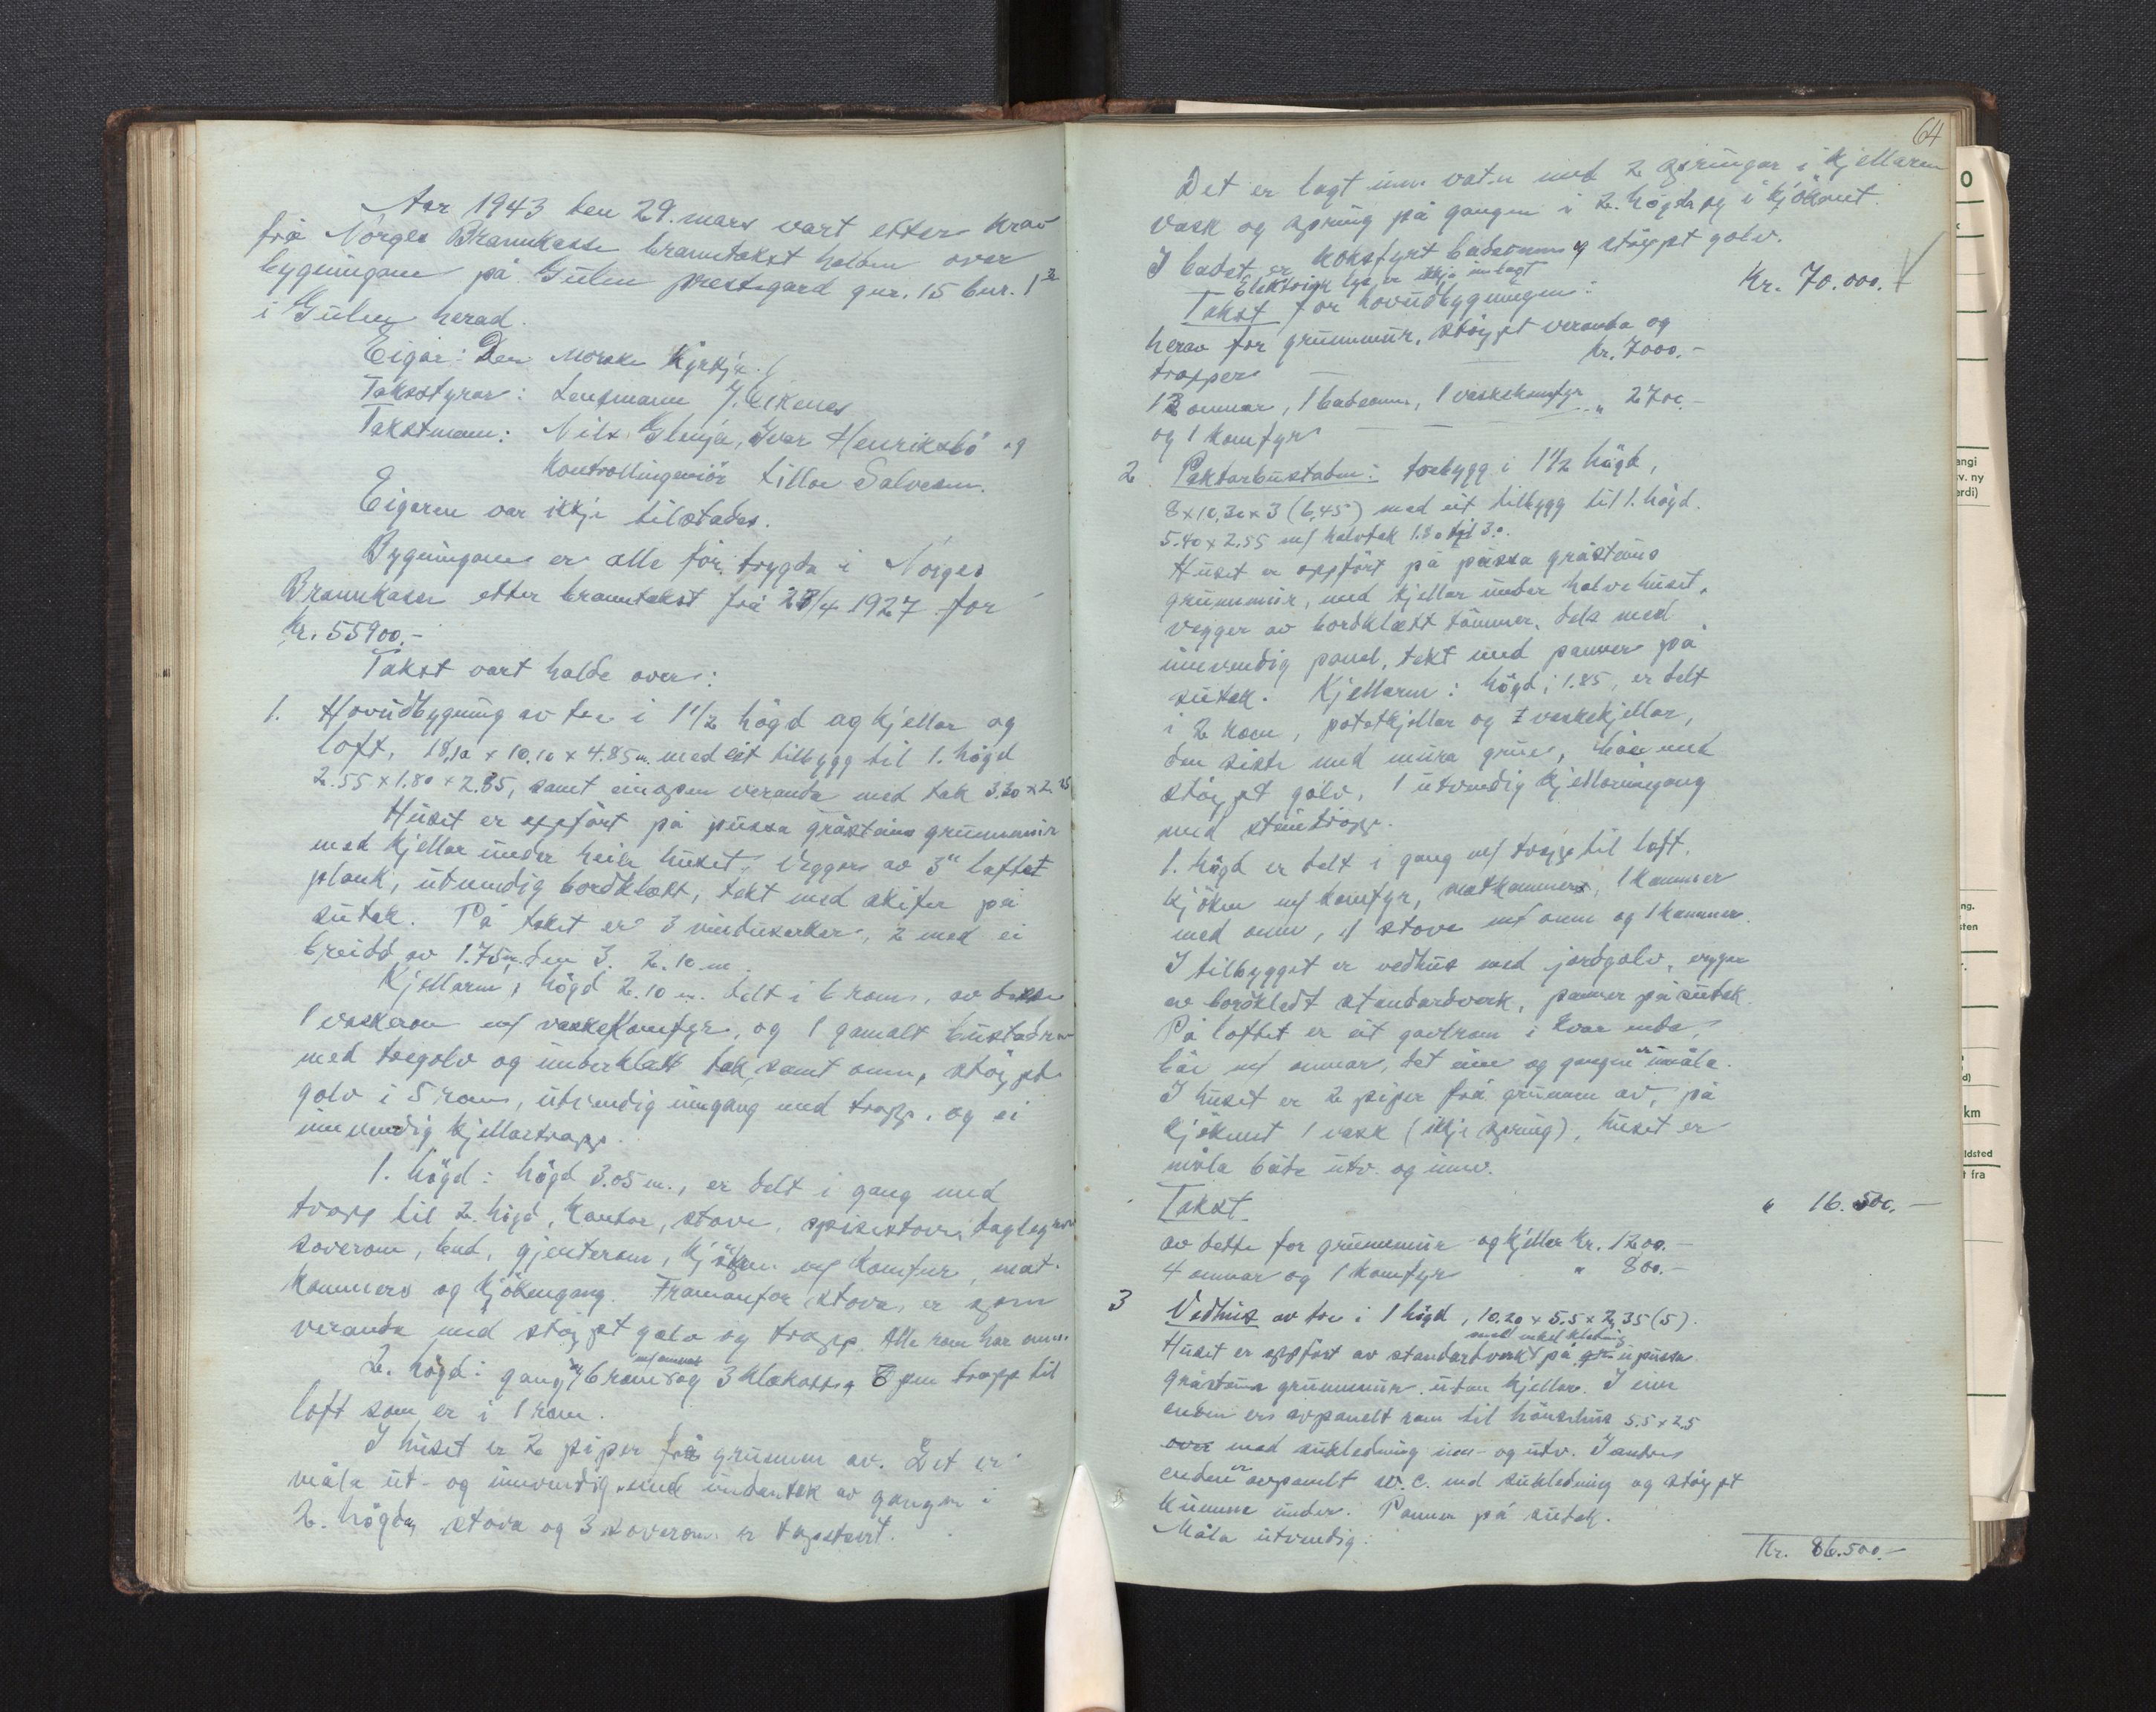 Aar 1943 den 29. mars vart etter krav
frå Norges Brannkasse branntakst halden over
bygningane på Gulen prestegard gnr. 15 bnr. 1
i Gulen herad.
Eigar: Den Norske Kyrkja.
Takststyrar: Lensmann J. Eikenes
Takstmenn: Nils Glenja, Ivar Henriksbö og
Kontrollingeniör Tillor Salvesen.
Eigaren var ikkje tilstades.
Bygningane er alle för trygda i Norges
Brannkasse etter branntakst frå 28/4 1927 for
kr. 55900.-
Takst vart halde over:
1. Hovudbygning av tre i 1 1/2 högd og kjellar og
loft, 18,10 x 10.10 x 4.85 m. med eit tilbygg til 1. högd
2.55 x 1.80 x 2.35, samt ein open veranda med tak 3.20 x 2.25
Huset er oppfört på pussa gråsteins grunnmur
med kjellar under heile huset. Vegger av 3" laftet
plank, utvendig bordklædt, tekt med skifer på
sutak. På taket er 3 vindusarker, 2 med ei
breidd av 1.75 m, den 3. 2.10 m.
Kjellaren, högd 2.10 m. delt i 6 rom, av desse
1 vaskerom m/ vaskekomfyr, og 1 gamalt bustadrom
med tregolv og underklædt tak, samt omn, stöypt
golv i 5 rom, utvendig inngang med trapp, og ei
innvendig kjellartrapp.
1. högd: högd 3.05 m., er delt i gang med
trapp til 2. högd, kontor, stove, spisestove, daglegrom
soverom, bad, gjenterom, kjöken m/ komfur, mat-
kammers og kjökengang. Framanfor stova er open
veranda med stöypt golv og trapp. Alle rom har omn.
2. högd: gang, 6 rom m/omnar og 3 klekott, open trapp til
loft som er i 1 rom.
I huset er 2 piper frå grunnen av. Det er
måla ut- og innvendig med undantak av gangen i
2. högda, stova og 3 soverom er tapetsert.
64
Det er lagt inn vatn med 2 springar i kjellaren
vask og spring på gangen i 2. högda og i kjökenet.
I badet er koksfyrt badeomn og stöypt golv.
Elektrisk lys er ikkje innlagt
Takst for hovudbygningen: Kr. 70.000.-
herav for grunnmur, stöypt veranda og
trapper kr. 7000.-
12 omnar, 1 badeomn, 1 vaskekomfyr
og 1 komfyr " 2700.-
2. Paktarbustaden: trebygg i 1 1/2 högd,
8 x 10,30 x 3 (6,45) med eit tilbygg til 1. högd.
5.40 x 2.55 m/ halvtak 1.80 til 3.
Huset er oppfört på pussa gråsteins
grunnmur, med kjellar under halve huset,
vegger av bordklædt tömmer, dels med
innvendig panel, tekt med panner på
sutak. Kjellaren: högd 1.85, er delt
i 2 rom, potetkjellar og vaskekjellar,
den siste med mura grue, båe med
stöypt golv, 1 utvendig kjellarinngang
med steintrapp.
1. högd er delt i gang m/ trapp til loft,
kjöken m/ komfyr, matkammers, 1 kammer
med omn, stove m/ omn og 1 kammer.
I tilbygget er vedhus med jordgolv, vegger
av bordkledt standardverk, panner på sutak.
På loftet er eit gavlrom i kvar ende,
båe m/ omnar, det eine og gangen er umåla.
I huset er 2 piper frå grunnen av, på
kjökenet 1 vask (ikkje spring), huset er
måla både utv. og innv.
Takst " 16.500.-
av dette for grunnmur og kjellar Kr. 1200.-
4 omnar og 1 komfyr " 800.-
3 Vedhus av tre i 1 högd, 10.20 x 5.5 x 2,35 (5).
med enkel kledning
Huset er oppfört av standardverk på upussa
gråsteins grunnmur utan kjellar. I ein
enden er avpanelt rom til hönsehus 5.5 x 2.5
med sukledning inn- og utv. I andre
enden er avpanelt w.c. med sukledning og stöypt
kumme under. Panner på sutak.
Måla utvendig.
Kr. 86.500.-